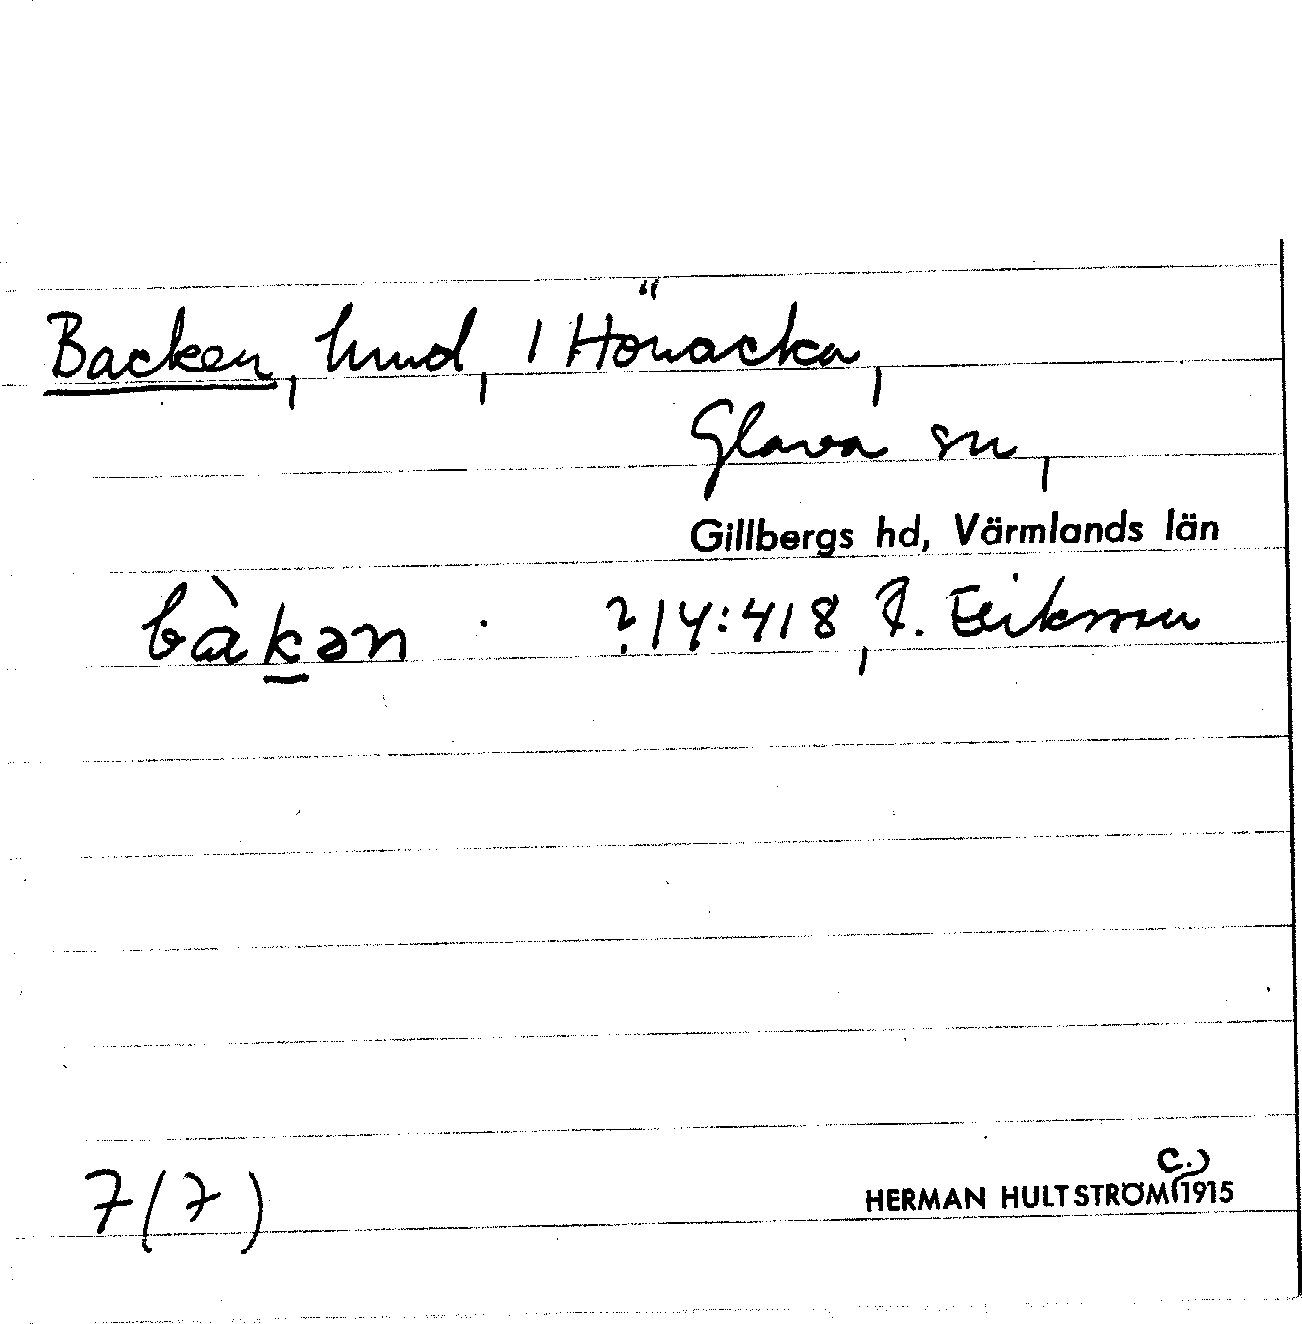 Backen, hmd, i Hönacka,
Glava sn,
Gillbergs hd, Värmlands län
bàkən . ?14:418, Eriksson
7(7)
c.
HERMAN HULTSTRÖM 1915